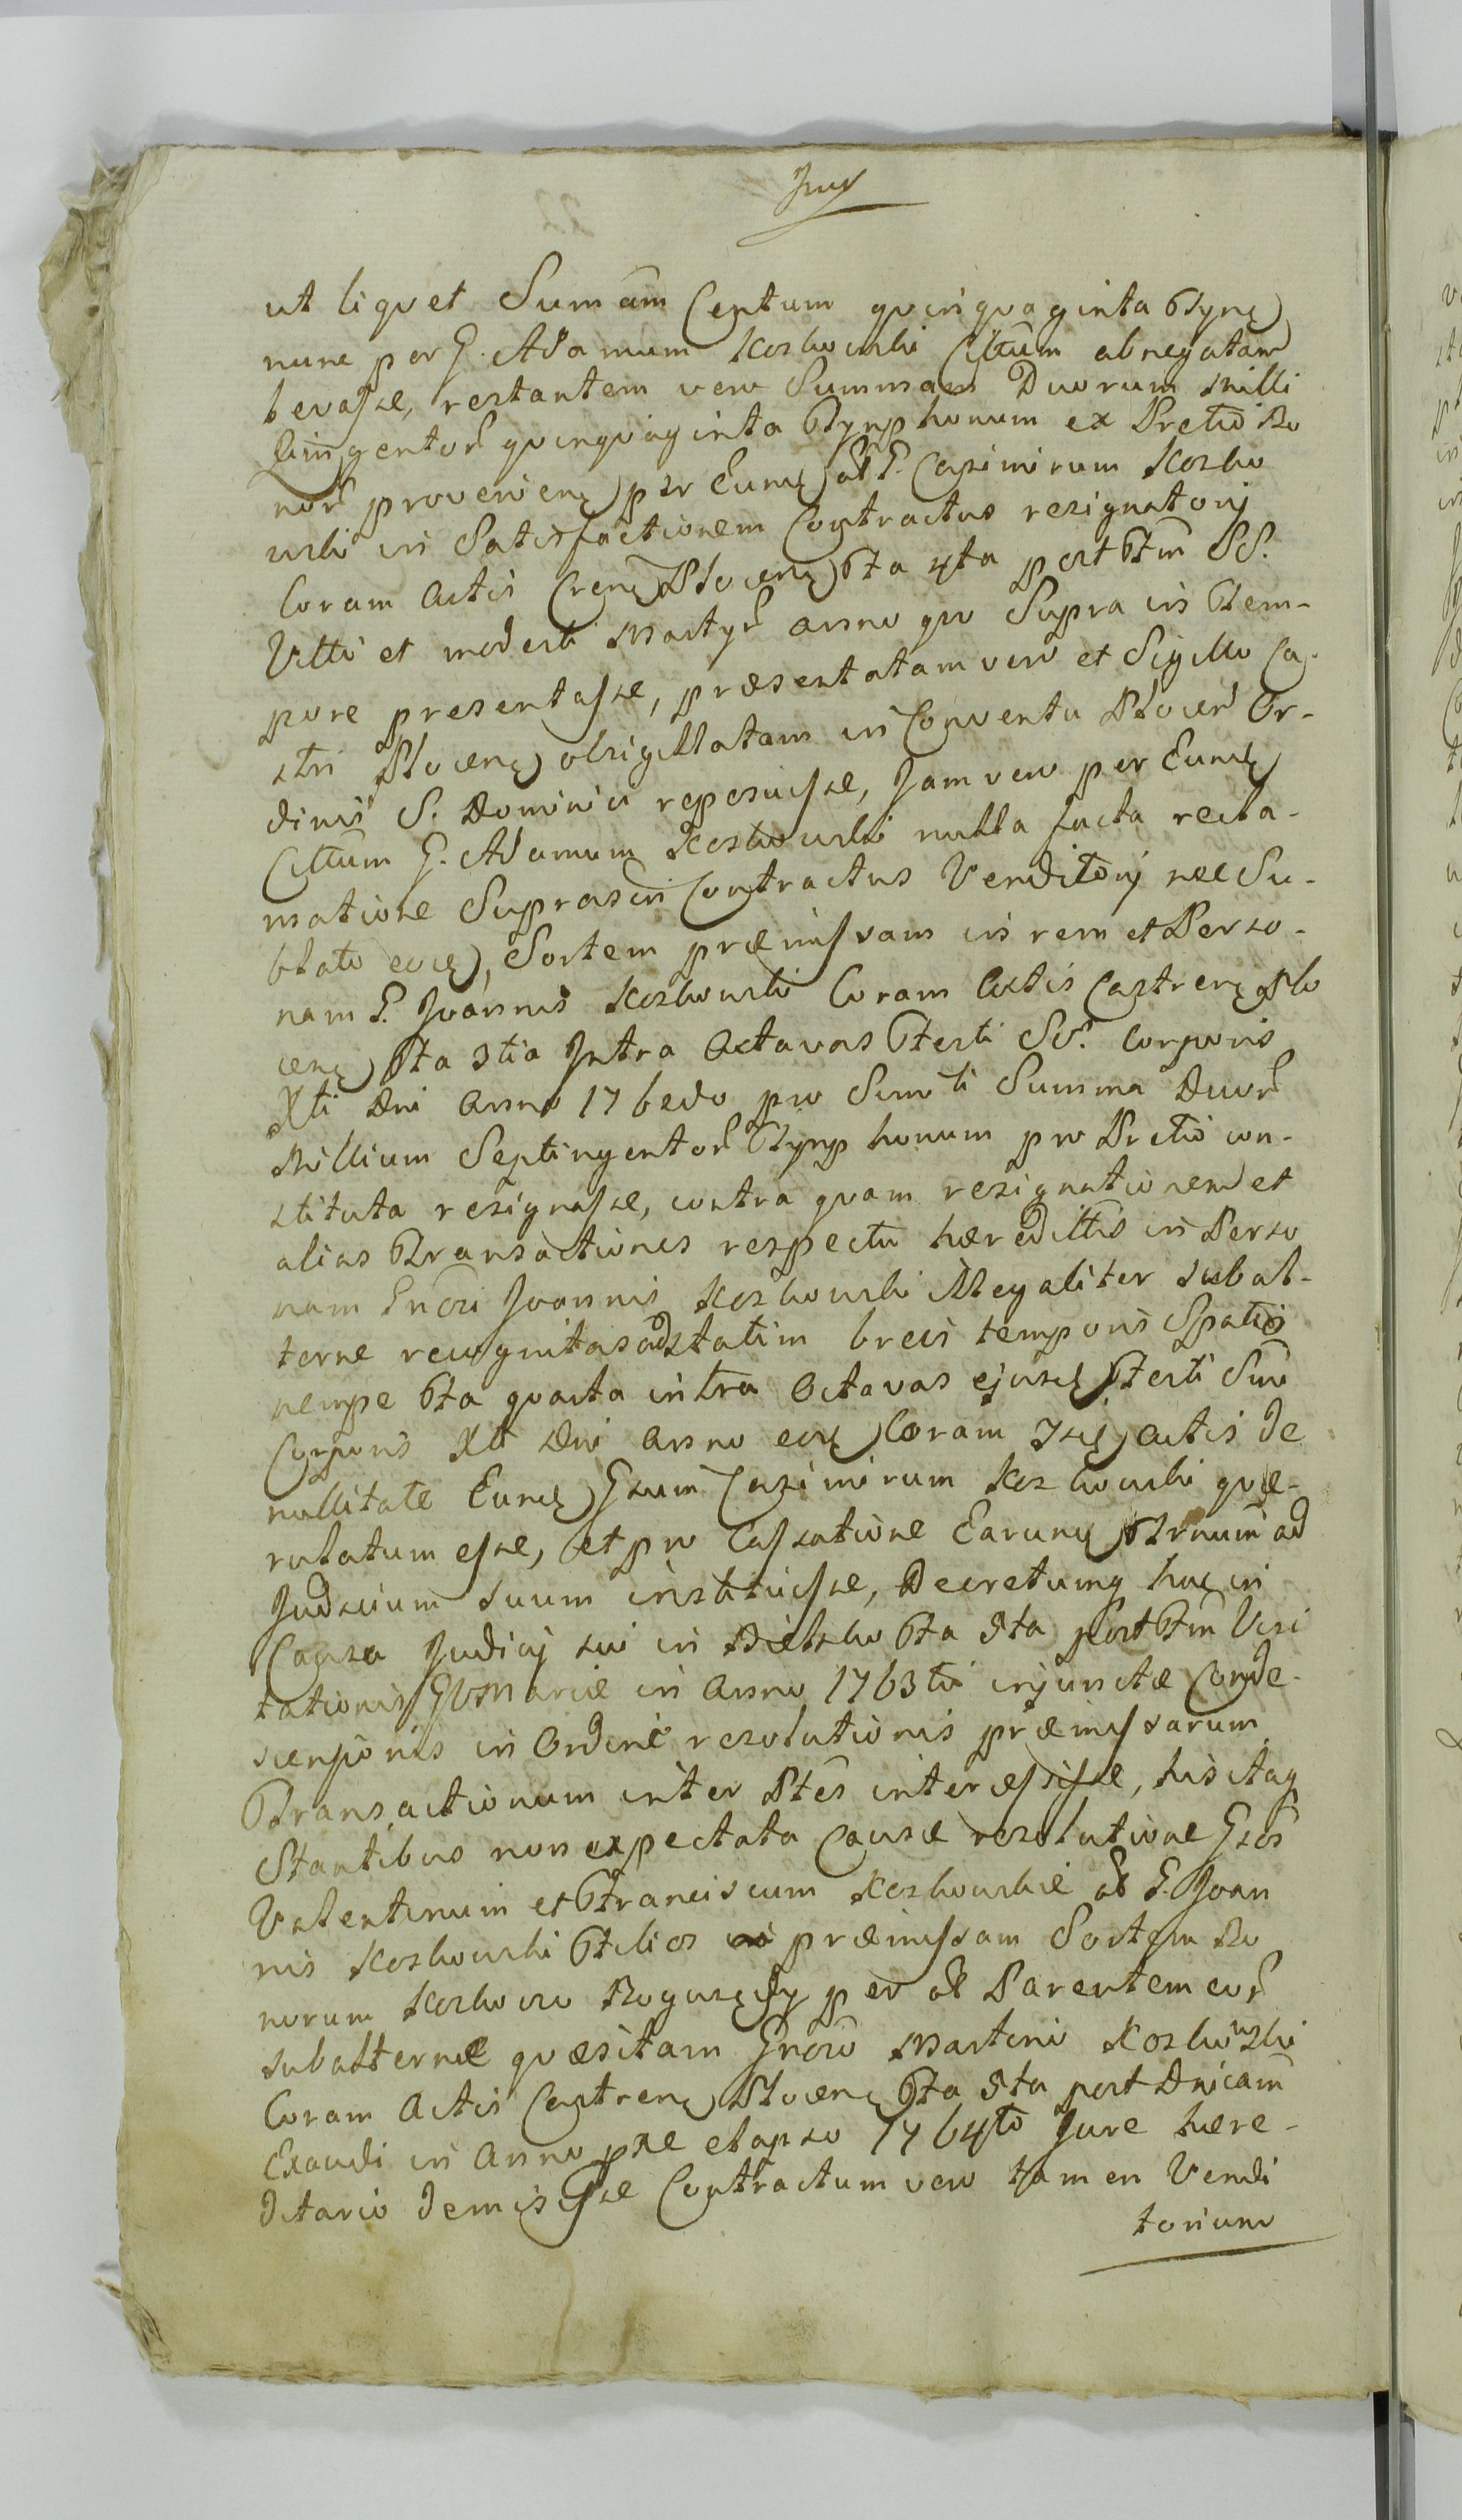 ut liquet Sumam Centum quinquaginta Tynp
nunc per G. Adamum Kozłowski Cittum abnegatam
levasse, restantem vero Summam Duorum Milli
Quingentor quinquaginta Tynphonum ex Pretio Bo
nor provenien per Eund ol G. Casimirum Kozło
wski in Satisfactionem Contractus resignatorij
Coram Actis Cren Plocen Fta 4ta post Ftm SS.
Vitti et modesti Martyr anno quo Supra in Tem-
pore presentasse, præsentatam vero et Sigillo Ca-
stri Plocen obsigillatam in Conventu Plocen Or-
dinis S. Dominici reposuisse, Jam vero per Eund
Cittum G. Adamum Kozłowski nulla facta recla-
matione Suprascri Contractus Venditorij nec Su-
blato eod, Sortem præmissam in rem et Perso-
nam G. Joannis Kozłowski Coram Actis Castren Plo
cen Fta 3tia Intra Octavas Festi SS. Corporis
Xti Dni Anno 1762do pro Simili Summa Duor
Millium Septingentor Tynphonum pro Pretio con-
stituta resignasse, contra quam resignationem et
alias Transactiones respectu hæredittis in Perso
nam Gnosi Joannis Kozłowski illegaliter subal-
terne recognitas statim brevi temporis Spatio
nempe Fta quarta intra Octavas ejusd Festi Smi
Corporis Xti Dni Anno eod Coram Iisd Actis de
nullitate Eund Gsum Casimirum Kozłowski quæ-
rulatum esse, et pro Cassatione Earund Trnum ad
Judicium suum instituisse, Decretumq hac in
Causa Judicij sui in Bielsko Fta 5ta post Ftm Visi
tationis GVMariæ in Anno 1763tio injunctæ Conde-
scensionis in Ordine resolutionis præmissarum
Transactionum inter Ptes intercessisse, his itaq
Stantibus non expectata Causæ resolutione Gsos
Valentinum et Franciscum Kozłowskie ol G. Joan
nis Kozłowski Filios præmissam Sortem Bo
norum Kozłowo per ol Parentem eor
subalterne quæsitam Gnoso Martino Kozłowski
Coram Actis Castren Plocen Fta 5ta post Dnicam
Exaudi in Anno præ elapso 1764to Jure hære-
ditario demisisse Contractum vero tamen Vendi
torium